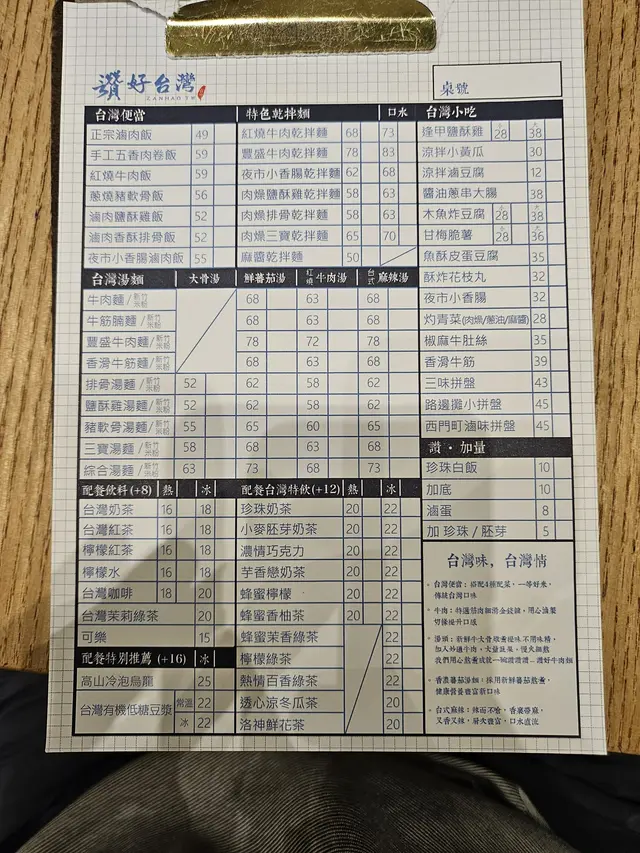 讚好台灣
ZANHAO
桌號
台灣便當
正宗滷肉飯 49
手工五香肉卷飯 59
紅燒牛肉飯 59
蔥燒豬軟骨飯 56
滷肉鹽酥雞飯 52
滷肉香酥排骨飯 52
夜市小香腸滷肉飯 55
特色乾拌麵 口水
紅燒牛肉乾拌麵 68 73
豐盛牛肉乾拌麵 78 83
夜市小香腸乾拌麵 62 68
肉燥鹽酥雞乾拌麵 58 63
肉燥排骨乾拌麵 58 63
肉燥三寶乾拌麵 65 70
麻醬乾拌麵 50
台灣小吃
逢甲鹽酥雞 小28 大38
涼拌小黃瓜 30
涼拌滷豆腐 12
醬油蔥串大腸 38
木魚炸豆腐 小28 大38
甘梅脆薯 小28 大36
魚酥皮蛋豆腐 35
酥炸花枝丸 32
夜市小香腸 32
灼青菜(肉燥/蔥油/麻醬) 28
椒麻牛肚絲 35
香滑牛筋 39
三味拼盤 43
路邊攤小拼盤 45
西門町滷味拼盤 45
台灣湯麵 大骨湯 鮮蕃茄湯 紅燒牛肉湯 台式麻辣湯
牛肉麵/新竹米粉 68 63 68
牛筋腩麵/新竹米粉 68 63 68
豐盛牛肉麵/新竹米粉 78 72 78
香滑牛筋麵/新竹米粉 68 63 68
排骨湯麵/新竹米粉 52 62 58 62
鹽酥雞湯麵/新竹米粉 52 62 58 62
豬軟骨湯麵/新竹米粉 55 65 60 65
三寶湯麵/新竹米粉 58 68 63 68
綜合湯麵/新竹米粉 63 73 68 73
讚・加量
珍珠白飯 10
加底 10
滷蛋 8
加 珍珠/胚芽 5
配餐飲料(+8) 熱 冰
台灣奶茶 16 18
台灣紅茶 16 18
檸檬紅茶 16 18
檸檬水 16 18
台灣咖啡 18 20
台灣茉莉綠茶 20
可樂 15
配餐特別推薦 (+16) 冰
高山冷泡烏龍 25
台灣有機低糖豆漿 常溫 22
冰 22
配餐台灣特飲(+12) 熱 冰
珍珠奶茶 20 22
小麥胚芽奶茶 20 22
濃情巧克力 20 22
芋香戀奶茶 20 22
蜂蜜檸檬 20 22
蜂蜜香柚茶 20 22
蜂蜜茉香綠茶 22
檸檬綠茶 22
熱情百香綠茶 22
透心涼冬瓜茶 20
洛神鮮花茶 20
台灣味，台灣情
台灣便當：搭配4種配菜，一等好米，
傳統台灣口味
湯頭：新鮮牛大骨燉煮提味不用味精，
加入外邊牛肉、大量蔬菜、慢火細熬
香濃蕃茄湯麵：採用新鮮蕃茄熬煮，
健康營養豐富新口味
台式麻辣：辣而不嗆，香裏帶麻，
又香又辣，層次豐富，口水直流